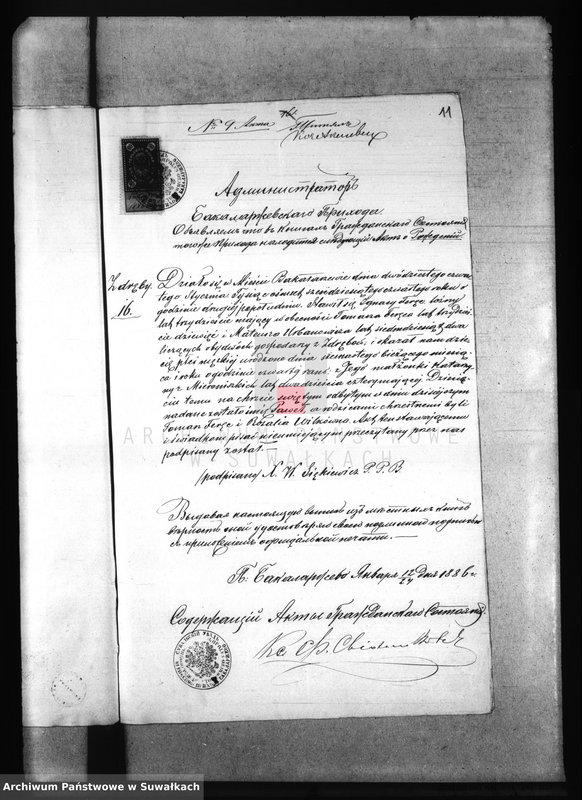 11
№ 9 Акта
Администраторъ
Бакаларжевскаго Прихода
Объявляемъ что въ книгахъ Гражданскаго Состоянія
того прихода находится слѣдующій Актъ о Рожденіи
Zdręby
16.
Działo się w Mieście Bakałarzewie dnia dwudziestego czwar-
tego Stycznia Tysiąc ośmset sześdziesiątego czwartego roku o
godzinie drugiej popołudniu. Stawił się Ignacy
lat trzydzieście mający w obecności Tomasza lat trzydzie-
ście dziewięć i Mateusza Urbanowicza lat siedmdziesiąt dwa
liczących obydwóch gospodarzy z Zdrębów, i okazał nam dzie-
cię płci męzkiej urodzone dnia siedmastego bieżącego miesią-
ca i roku o godzinie czwartej rano z Jego małżonki Katarzy-
ny z lat dwadzieścia cztery mającej. Dziecię-
ciu temu na chrzcie świętym odbytym w dniu dzisiejszym
nadane zostało imię Paweł, a rodzicami chrzestnemi byli
Toman i Rozalia Akt ten stawającemu
i świadkom pisać nieumiejącym przeczytany przez nas
podpisany został.
podpisany X. W. P. P. B
Выдавая настоящую выпись изъ мѣстныхъ книгъ
вѣрность оной удостовѣряю своею подписью
съ приложеніемъ оффиціальной печати.
П. Бакаларжево Января 12/24 дня 1886 г.
Содержащій Акты Гражданскаго Состоянія
Кс. Ф.
ARCHIWUM PAŃSTWOWE
W SUWAŁKACH
Archiwum Państwowe w Suwałkach